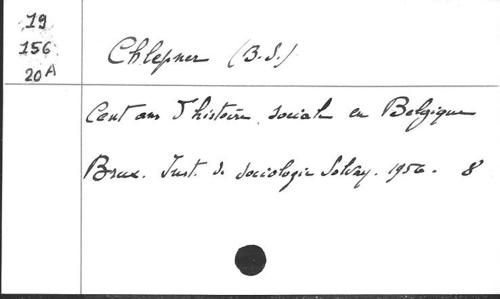 19
156
20A
Chlepner (B.S.)
Cent ans d'histoire sociale en Belgique
Brux. Inst. de sociologie Solvay. 1956. 8